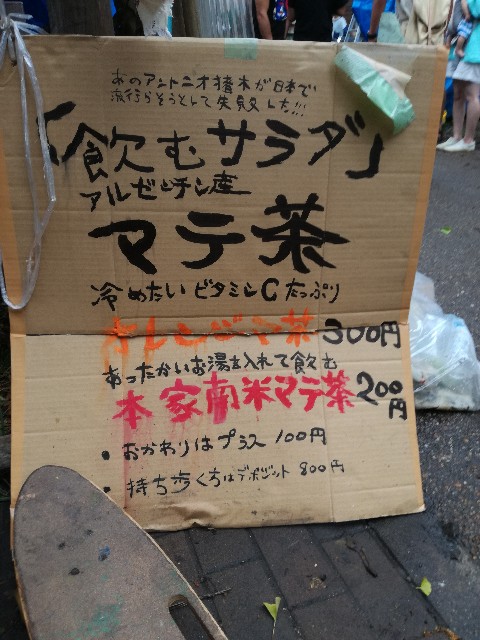 あのアントニオ猪木が日本で
流行らそうとして失敗した!!!
「飲むサラダ」
アルゼンチン産
マテ茶
冷めたい ビタミンCたっぷり
オレンジマテ茶 300円
あったかいお湯を入れて飲む
本家南米マテ茶 200円
・おかわりはプラス100円
・持ち歩く方はデポジット 800円